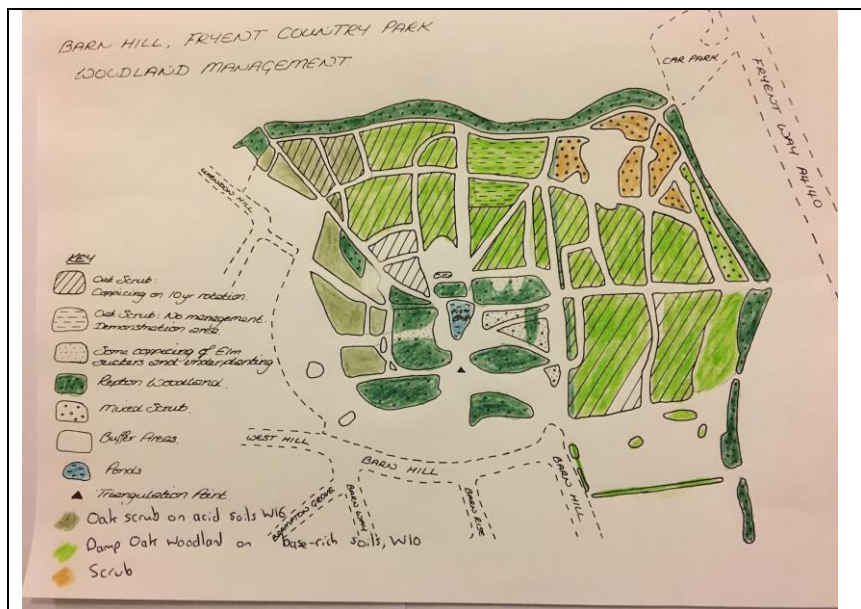 BARN HILL, FRYENT COUNTRY PARK
WOODLAND MANAGEMENT.
CAR PARK
FRYENT WAY A4140
KEY
Oak Scrub:
Coppicing on 10yr rotation.
Oak Scrub: No management.
Demonstration area
Some coppicing of Elm
suckers and underplanting
Repton Woodland.
Mixed Scrub.
Buffer Areas.
Ponds
Triangulation Point.
Oak scrub on acid soils W16
Damp Oak Woodland on base-rich soils, W10
Scrub
WEST HILL
BARN HILL
BRAMPTON GROVE
BARN WAY
BARN RISE
BARN HILL